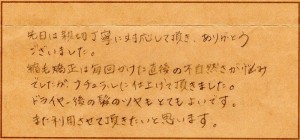 先日は親切丁寧に対応して頂き、ありがとう
ございました。
縮毛矯正は毎回かけた直後の不自然さが悩み
でしたが、ナチュラルに仕上げて頂きました。
ドライヤー後の髪のツヤもとてもよいです。
また利用させて頂きたいと思います。